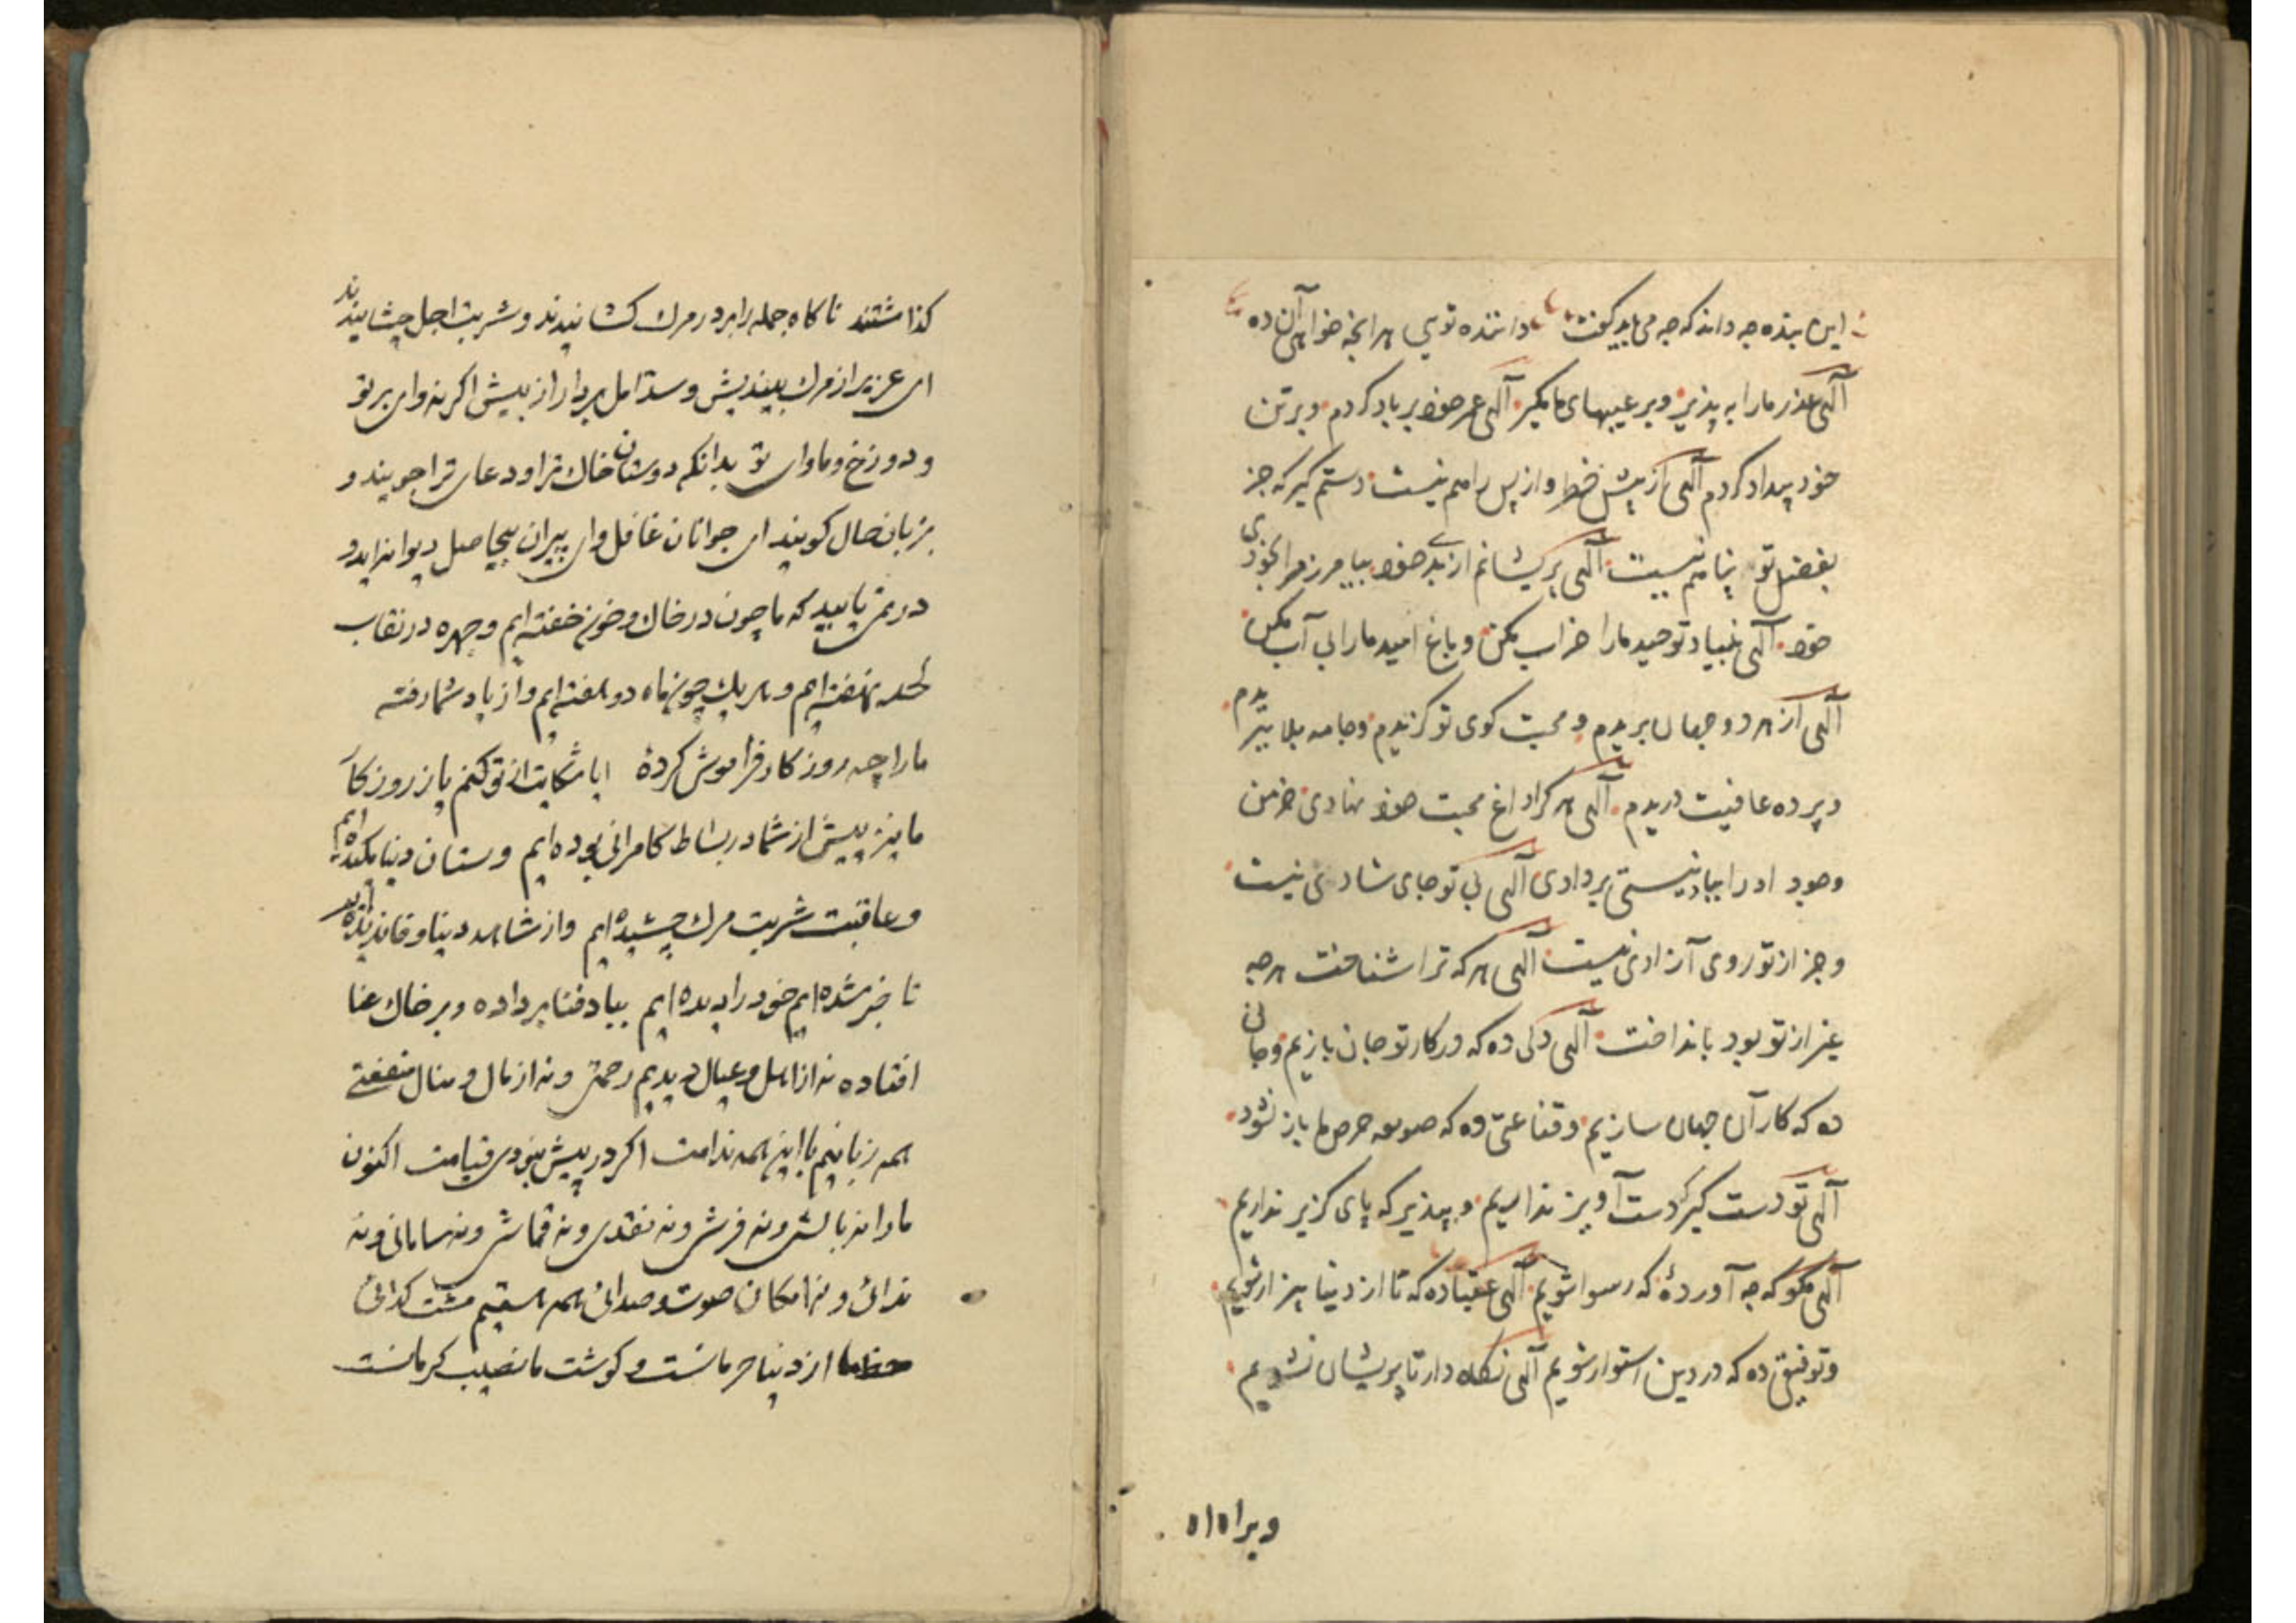 این بنده چه داند که چه می باید گفت داننده تویی هر انچه خواهی آن ده
آلهی عذر مارا به پذیر و بر عیبهای ما مگیر آلهی عمر خود بر باد کردم و بر تن
خود بیداد کردم آلهی از پیش خطر و از پس راهم نیست دستم گیر که جز
بفضل تو پناهم نیست آلهی پریشانم از بدی خود بیامرز مرا بخودی
خود آلهی بنیاد توحید مارا خراب مکن و باغ امید مارا بی آب مکن
آلهی از هر دو جهان بریدم و محبت کوی تو گزیدم و جامه بلا ببریدم
و پرده عافیت دریدم آلهی هر کرا داغ محبت خود نهادی خرمن
وجود او را بباد نیستی بر دادی آلهی بی تو جای شادی نیست
و جز از تو روی آزادی نیست آلهی هر که ترا شناخت هرچه
غیر از تو بود بانداخت آلهی دلی ده که در کار تو جان بازیم و جانی
ده که کار آن جهان سازیم و قناعتی ده که صومعه حرص ما باز نشود
آلهی تو دست گیر که دست آویز نداریم و بپذیر که پای گزیر نداریم
آلهی مگو که چه آوردهٔ که رسوا شویم آلهی ده که تا از دنیا بیزار شویم
و توفیق ده که در دین استوار شویم آلهی نگاه دار تا پریشان نشویم
کذاشتند ناکاه جمله را بر در مرك کشانیدند و شربت اجل چشانیدند
ای عزیز از مرك بیندیش و ستر امل بردار از پیش اکر نه وای بر تو
و دوزخ و ماوای تو بدانکه دوستان خاك ترا و دعای ترا جویند و
بزبان حال کویند ای جوانان غافل و ای پیران بیحاصل دیوانه اید و
در نمی یابید که ما چون در خاك و خون خفته ایم و چهره در نقاب
لحد نهفته ایم و هر یك چون ماه دو هفته ایم و از یاد شما رفته
مارا چه روزکار فراموش کردهٔ ایا شکایت از تو کنم یا ز روزکار
ما نیز پیش از شما در بساط کامرانی بوده ایم و ستان دنیا مکیده ایم
و عاقبت شربت مرك چشیده ایم و از شاهد دنیا وفا ندیده ایم
تا خبر شده ایم خود را دیده ایم بباد فنا بر داده و بر خاك عنا
افتاده نه از اهل و عیال دیدیم رحمتی و نه از مال و منال منفعتی
همه زیانیم با این همه ندامت اکر در پیش نبودی قیامت اکنون
مارا نه بالش و نه فرش و نه نقدی و نه قماش و نه سامانی و نه
ندائی و نه امکان صوت و صدائی همه هستیم مشت کدائی
حظ ما از دنیا حرمانست و کوشت ما نصیب کرمانست